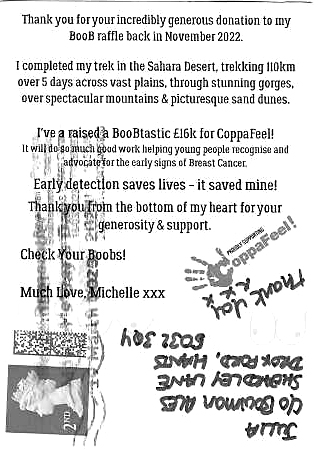 Thank you for your incredibly generous donation to my
BooB raffle back in November 2022.
I completed my trek in the Sahara Desert, trekking 110km
over 5 days across vast plains, through stunning gorges,
over spectacular mountains & picturesque sand dunes.
I've a raised a BooBtastic £16k for CoppaFeel!
It will do so much good work helping young people recognise and
advocate for the early signs of Breast Cancer.
Early detection saves lives – it saved mine!
Thank you from the bottom of my heart for your
generosity & support.
Check Your Boobs!
Much Love, Michelle xxx
PROUDLY SUPPORTING
CoppaFeel!
Thank you
x x x
JULIA
C/O BOWMAN ALES
LANE
DROXFORD, HANTS
SO32 3QY
2ND